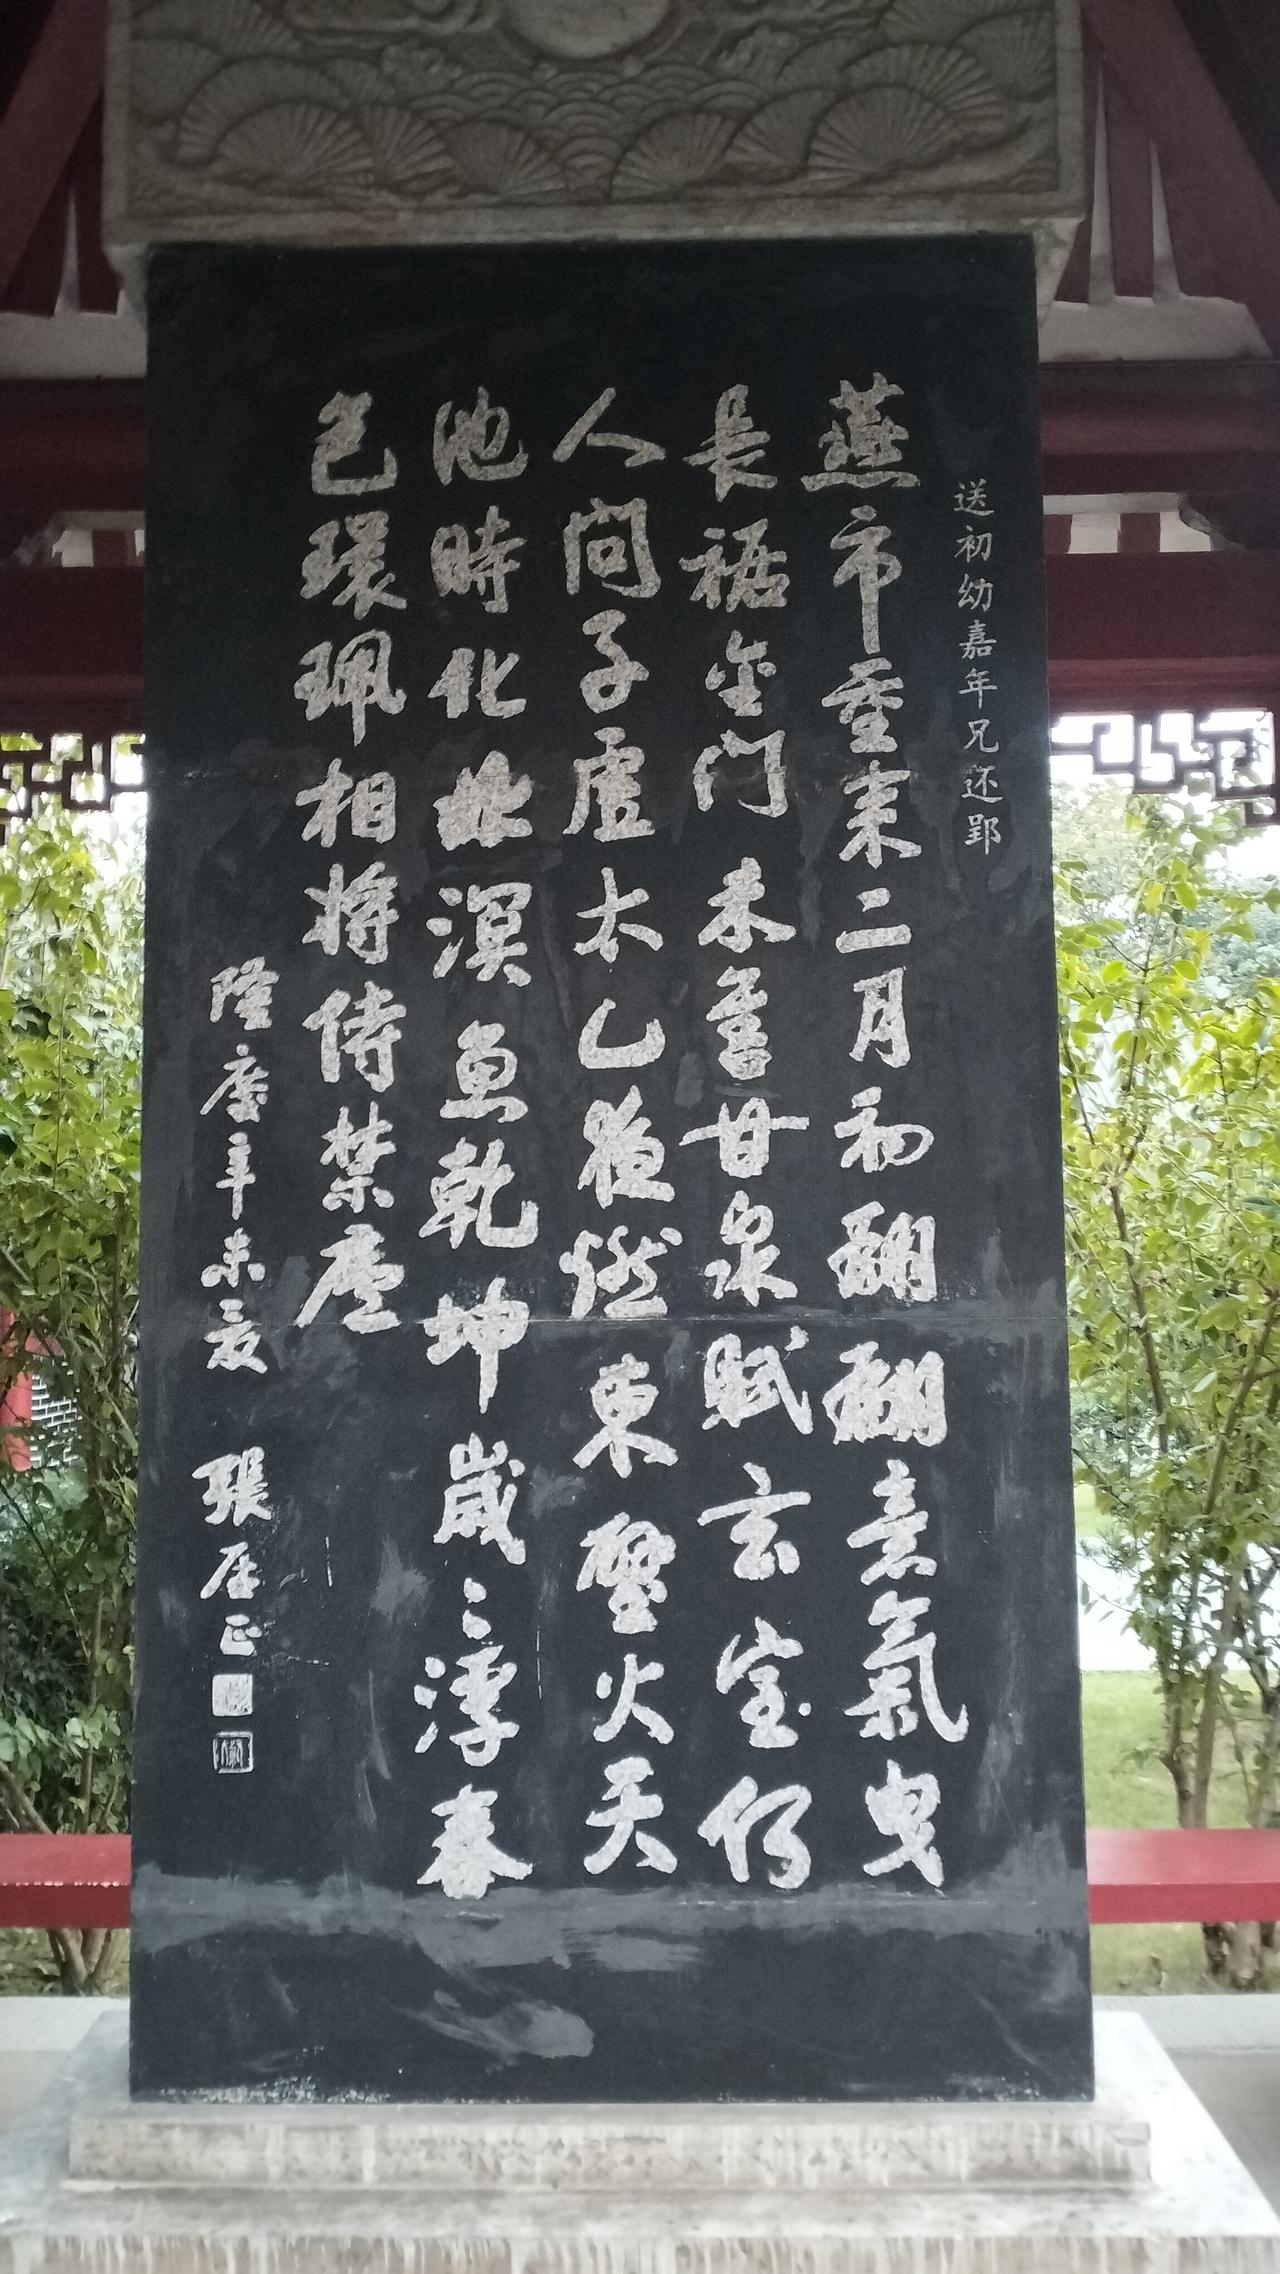 送初幼嘉年兄还郢
燕市重来二月初翩翩意氣曳
長裾金门未售甘泉賦玄室何
人问子虚太乙夜燃東壁火天
池時化北溟魚乾坤歲々浮春
色環珮相将侍禁廬
隆慶辛未夏 張居正